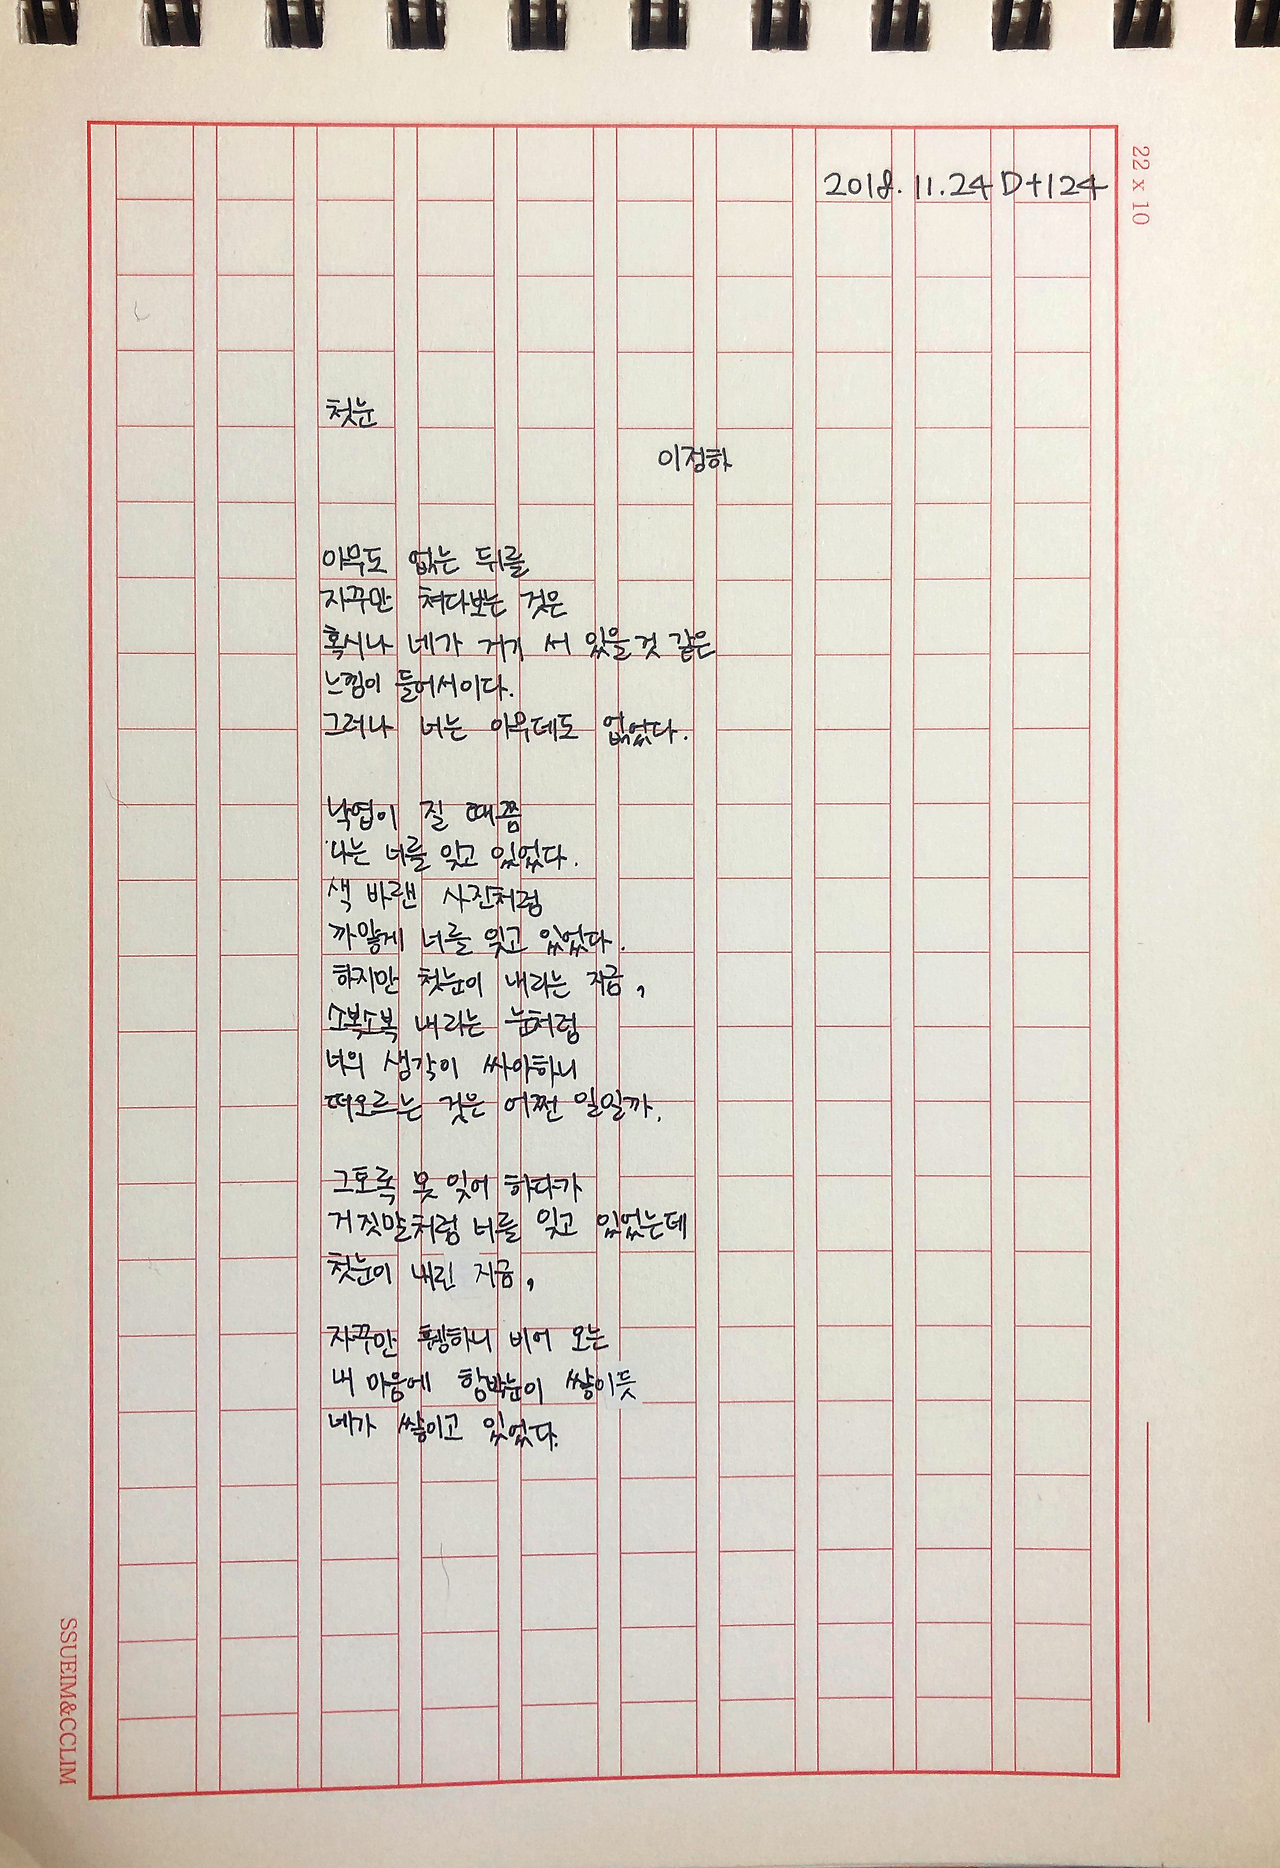 22 x 10
2018. 11. 24 D+124
첫눈
이정하
아무도 없는 뒤를
자꾸만 쳐다보는 것은
혹시나 네가 거기 서 있을것 같은
느낌이 들어서이다.
그러나 너는 아무데도 없었다.
낙엽이 질 때쯤
나는 너를 잊고 있었다.
색 바랜 사진처럼
까맣게 너를 잊고 있었다.
하지만 첫눈이 내리는 지금,
소복소복 내리는 눈처럼
너의 생각이 싸아하니
떠오르는 것은 어쩐 일일까.
그토록 못 잊어 하다가
거짓말처럼 너를 잊고 있었는데
첫눈이 내린 지금,
자꾸만 휑하니 비어 오는
내 마음에 함박눈이 쌓이듯
네가 쌓이고 있었다.
SSUEIM&CCLIM